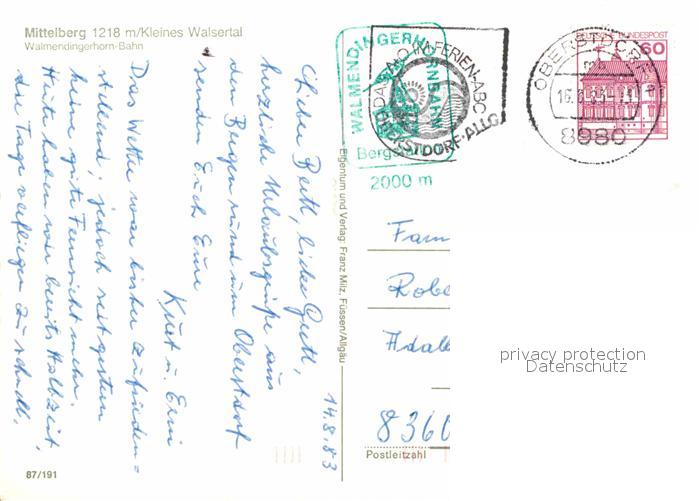 Mittelberg 1218 m/Kleines Walsertal
Walmendingerhorn-Bahn
14.8.83
Lieber Bertl, liebe Gertl,
herzliche Urlaubsgrüße aus
den Bergen rund um Oberstdorf
senden Euch Eure
Kurt u. Erni
Das Wetter war bisher zufrieden=
stellend, jedoch seit gestern
keine gute Fernsicht mehr.
Heute haben wir bereits Halbzeit,
die Tage verfliegen zu schnell.
87/191
Eigentum und Verlag: Franz Milz, Füssen/Allgäu
WALMENDINGERHORNBAHN
2000 m
OBERSTDORF-ALLG.
OBERSTDORF
8980
DEUTSCHE BUNDESPOST
60
Fam
Robe
Adal
8360
Postleitzahl
privacy protection
Datenschutz